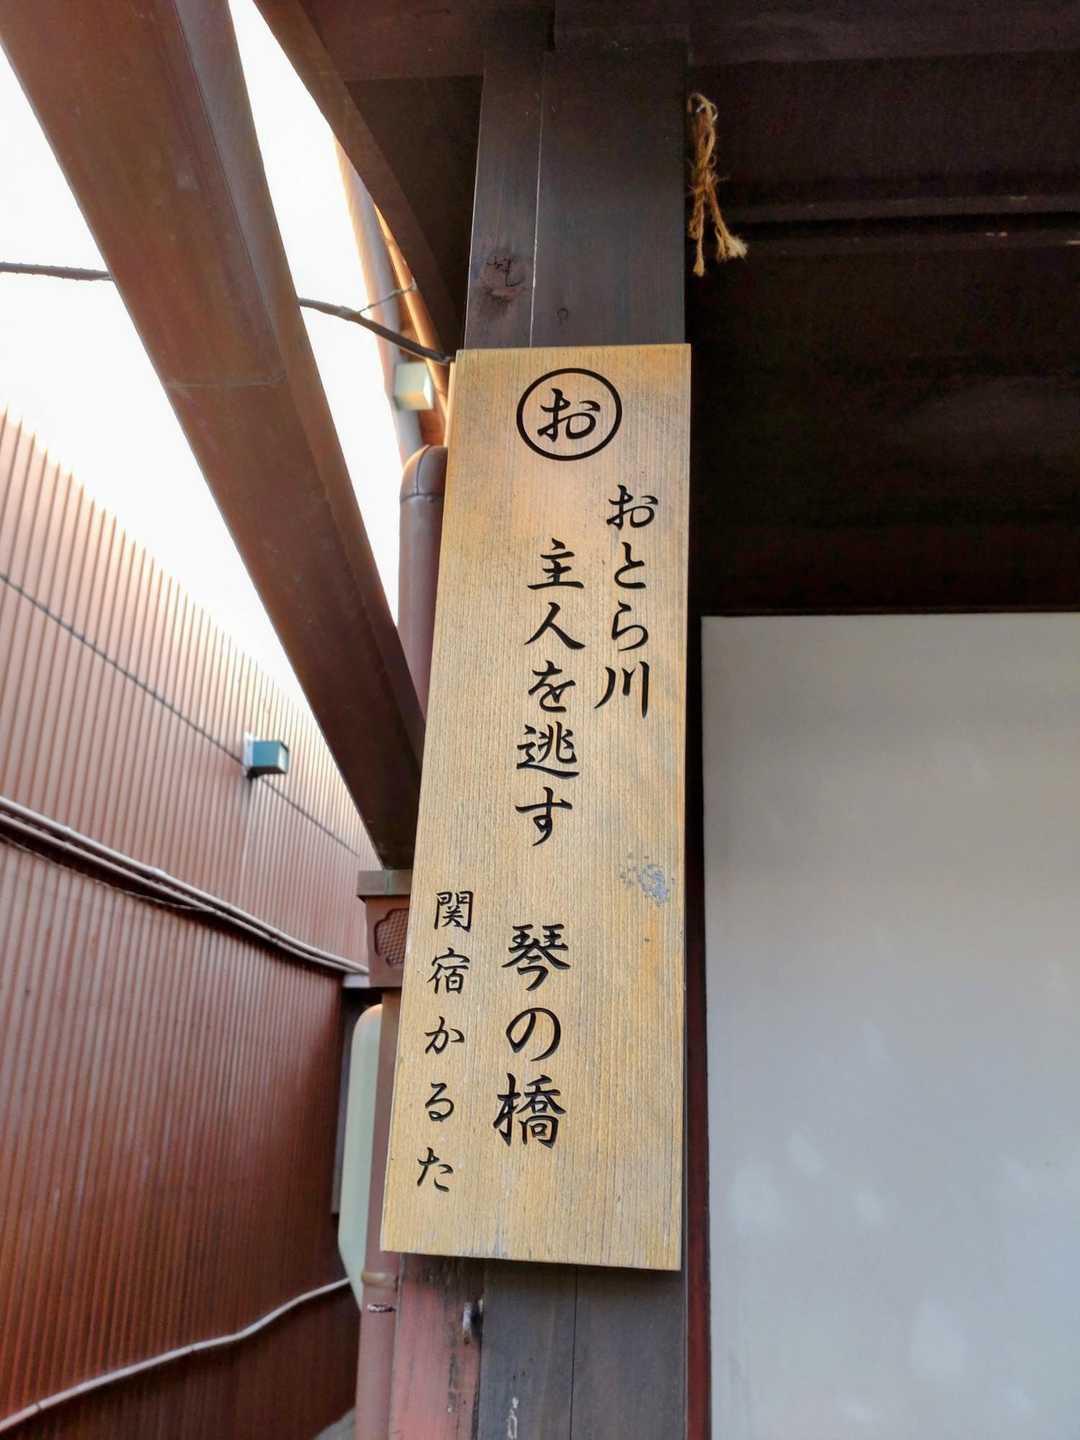 お
おとら川
主人を逃す 琴の橋
関宿かるた